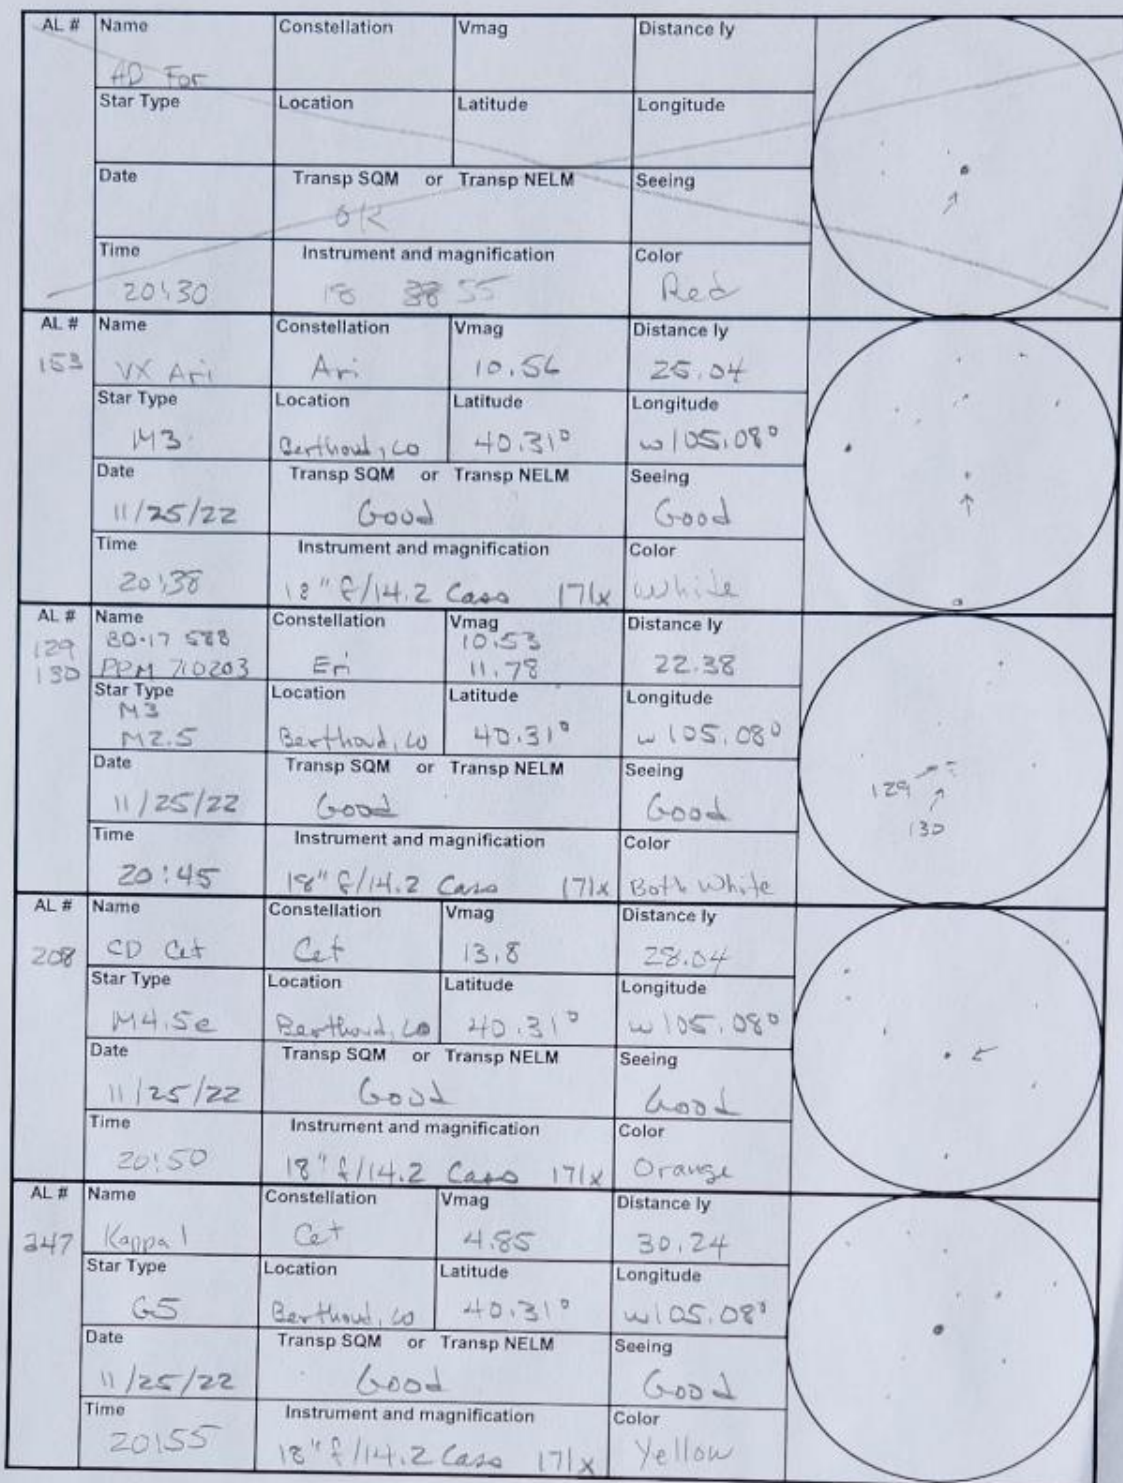 AL # Name Constellation Vmag Distance ly
AD For
Star Type Location Latitude Longitude
Date Transp SQM or Transp NELM Seeing
OK
Time Instrument and magnification Color
20:30 18 55 Red
AL # Name Constellation Vmag Distance ly
153 VX Ari Ari 10.56 25.04
Star Type Location Latitude Longitude
M3 Berthoud, CO 40.31° w105.08°
Date Transp SQM or Transp NELM Seeing
11/25/22 Good Good
Time Instrument and magnification Color
20:38 18" f/14.2 Cass 171x White
AL # Name Constellation Vmag Distance ly
129 BD-17 588 10.53
130 PPM 710203 Eri 11.78 22.38
Star Type Location Latitude Longitude
M3
M2.5 Berthoud, CO 40.31° w105.08°
Date Transp SQM or Transp NELM Seeing
129
11/25/22 Good Good
130
Time Instrument and magnification Color
20:45 18" f/14.2 Cass 171x Both White
AL # Name Constellation Vmag Distance ly
208 CD Cet Cet 13.8 28.04
Star Type Location Latitude Longitude
M4.5e Berthoud, CO 40.31° w105.08°
Date Transp SQM or Transp NELM Seeing
11/25/22 Good Good
Time Instrument and magnification Color
20:50 18" f/14.2 Cass 171x Orange
AL # Name Constellation Vmag Distance ly
347 Kappa 1 Cet 4.85 30.24
Star Type Location Latitude Longitude
G5 Berthoud, CO 40.31° w105.08°
Date Transp SQM or Transp NELM Seeing
11/25/22 Good Good
Time Instrument and magnification Color
20:55 18" f/14.2 Cass 171x Yellow